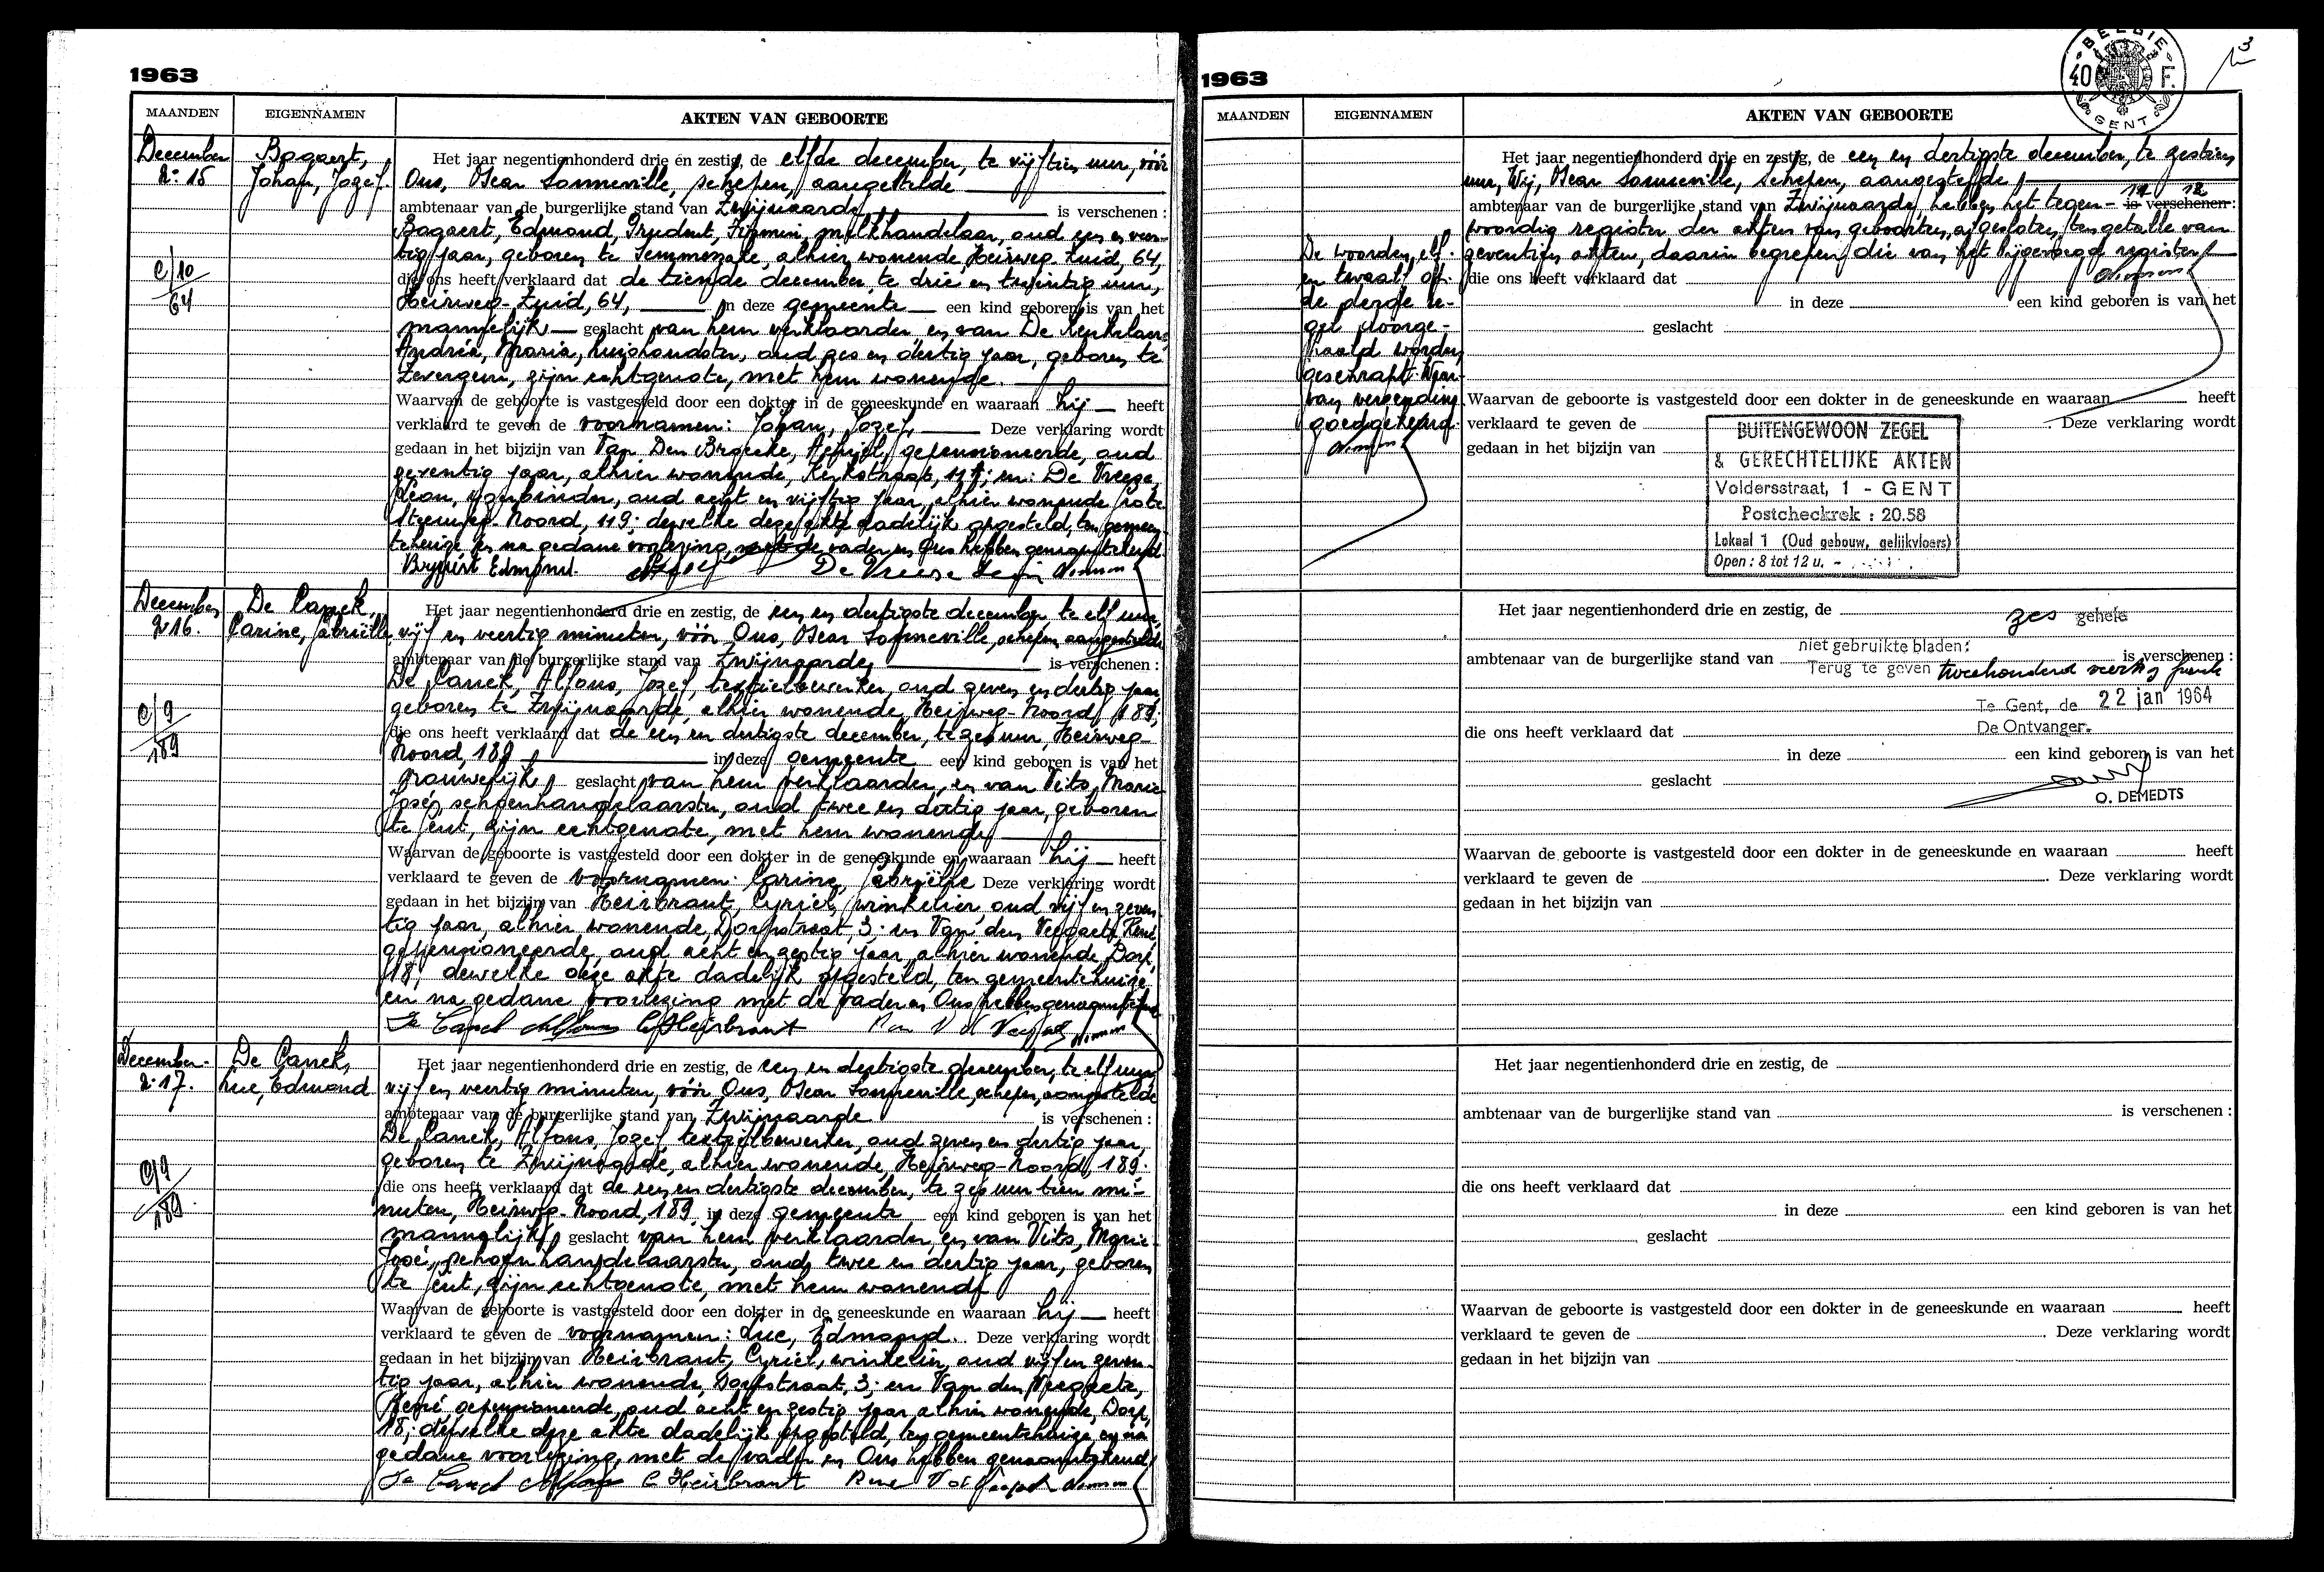 1963
MAANDEN EIGENNAMEN AKTEN VAN GEBOORTE
December
N: 15
Bogaert,
Johan, Jozef.
C/10
64
Het jaar negentienhonderd drie en zestig, de elfde december, te vijftien uur, vóór
Ons, Oscar Sonneville, schepen, aangestelde
ambtenaar van de burgerlijke stand van Zwijnaarde, is verschenen :
Bogaert, Edmond, Prudent, Firmin, melkhandelaar, oud een en veer-
tig jaar, geboren te Semmerzake, alhier wonende, Heirweg-Zuid, 64,
die ons heeft verklaard dat de tiende december, te drie en twintig uur,
Heirweg-Zuid, 64, in deze gemeente een kind geboren is van het
mannelijk geslacht van hem verklaarder, en van De
Andréa, Maria, huishoudster, oud zes en dertig jaar, geboren te
Zevergem, zijn echtgenote, met hem wonende.
Waarvan de geboorte is vastgesteld door een dokter in de geneeskunde en waaraan hij heeft
verklaard te geven de voornamen: Johan, Jozef, Deze verklaring wordt
gedaan in het bijzijn van Van Den Broecke, Achiel, gepensioneerde, oud
zeventig jaar, alhier wonende, Kerkstraat, en: De Vreese,
oud acht en vijftig jaar, alhier wonende
Steenweg-Noord, 119; dewelke deze akte dadelijk opgesteld, ten gemeen-
tehuize, en na gedane voorlezing, met de vader en Ons hebben genaamtekend.
Bogaert Edmond. De Vreese
December
N: 16.
De Canck,
Carine, Gabriëlle
C/9
189
Het jaar negentienhonderd drie en zestig, de een en dertigste december, te elf uur,
vijf en veertig minuten, vóór Ons, Oscar Sonneville, schepen, aangestelde
ambtenaar van de burgerlijke stand van Zwijnaarde, is verschenen :
De Canck, Alfons, Jozef, textielbewerker, oud zeven en dertig jaar,
geboren te Zwijnaarde, alhier wonende, Heirweg-Noord, 189;
die ons heeft verklaard dat de een en dertigste december, te zes uur, Heirweg-
Noord, 189 in deze gemeente een kind geboren is van het
vrouwelijk geslacht van hem verklaarder, en van Vits, Marie
José, schoenhandelaarster, oud twee en dertig jaar, geboren
te Gent, zijn echtgenote, met hem wonende
Waarvan de geboorte is vastgesteld door een dokter in de geneeskunde en waaraan hij heeft
verklaard te geven de voornamen: Carine, Gabriëlle Deze verklaring wordt
gedaan in het bijzijn van Heirbrant, Cyriel, winkelier, oud vijf en zeven-
tig jaar, alhier wonende, Dorpstraat, 3; en Van den Veegaete, René,
gepensioneerde, oud acht en zestig jaar, alhier wonende, Dorp,
18; dewelke deze akte dadelijk opgesteld, ten gemeentehuize
en na gedane voorlezing met de vader en Ons hebben genaamtekend
De Canck Alfons C. Heirbrant
December
N: 17.
De Canck,
Luc, Edmond
C/9
189
Het jaar negentienhonderd drie en zestig, de een en dertigste december, te elf uur,
vijf en veertig minuten, vóór Ons, Oscar Sonneville, schepen, aangestelde
ambtenaar van de burgerlijke stand van Zwijnaarde is verschenen :
De Canck, Alfons, Jozef, textielbewerker, oud zeven en dertig jaar,
geboren te Zwijnaarde, alhier wonende, Heirweg-Noord, 189;
die ons heeft verklaard dat de een en dertigste december, te zes uur tien mi-
nuten, Heirweg-Noord, 189, in deze gemeente een kind geboren is van het
mannelijk geslacht van hem verklaarder, en van Vits, Marie-
José, schoenhandelaarster, oud twee en dertig jaar, geboren
te Gent, zijn echtgenote, met hem wonende
Waarvan de geboorte is vastgesteld door een dokter in de geneeskunde en waaraan hij heeft
verklaard te geven de voornamen: Luc, Edmond. Deze verklaring wordt
gedaan in het bijzijn van Heirbrant, Cyriel, winkelier, oud vijf en zeven-
tig jaar, alhier wonende, Dorpstraat, 3; en Van den Veegaete,
René gepensioneerde, oud acht en zestig jaar alhier wonende, Dorp,
18; dewelke deze akte dadelijk opgesteld, ten gemeentehuize en na
gedane voorlezing, met de vader en Ons hebben genaamtekend
De Canck Alfons C Heirbrant René
1963
BELGIE
40 F.
GENT
3
MAANDEN EIGENNAMEN AKTEN VAN GEBOORTE
Het jaar negentienhonderd drie en zestig, de een en dertigste december, te zestien
uur, Wij, Oscar Sonneville, schepen, aangestelde
11 12
ambtenaar van de burgerlijke stand van Zwijnaarde, hebben het tegen- is verschenen :
woordig register der akten van geboorten, afgesloten, ten getalle van
zeventien akten, daarin begrepen die van het bijgevoegd register
De woorden, elf
en twaalf op
de derde re-
gel doorge-
haald worden
geschrapt.
van verzending
goedgekeurd.
die ons heeft verklaard dat
in deze een kind geboren is van het
geslacht
Waarvan de geboorte is vastgesteld door een dokter in de geneeskunde en waaraan heeft
verklaard te geven de Deze verklaring wordt
gedaan in het bijzijn van
BUITENGEWOON ZEGEL
& GERECHTELIJKE AKTEN
Voldersstraat, 1 - GENT
Postcheckrek : 20.58
Lokaal 1 (Oud gebouw, gelijkvloers)
Open : 8 tot 12 u. -
Het jaar negentienhonderd drie en zestig, de
zes gehele
niet gebruikte bladen:
ambtenaar van de burgerlijke stand van is verschenen :
Terug te geven tweehonderd veertig frank
Te Gent, de 22 jan 1964
die ons heeft verklaard dat De Ontvanger.
in deze een kind geboren is van het
geslacht
O. DEMEDTS
Waarvan de geboorte is vastgesteld door een dokter in de geneeskunde en waaraan heeft
verklaard te geven de . Deze verklaring wordt
gedaan in het bijzijn van
Het jaar negentienhonderd drie en zestig, de
ambtenaar van de burgerlijke stand van is verschenen :
die ons heeft verklaard dat
in deze een kind geboren is van het
geslacht
Waarvan de geboorte is vastgesteld door een dokter in de geneeskunde en waaraan heeft
verklaard te geven de . Deze verklaring wordt
gedaan in het bijzijn van